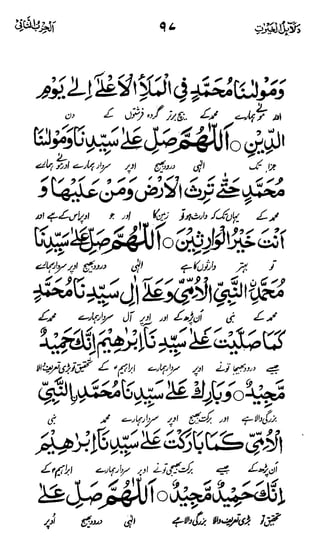 دلائل الخیرات ۹۷ الحزب الثانی
وَمَوْلٰنَا مُحَمَّدٍ فِي الْمَلَأِ الْاَعْلٰٓى اِلٰى يَوْمِ
اور مولٰی ہمارے محمد کے بیچ برتر گروہ فرشتوں کے دن
الدِّيْنِ ○ اَللّٰهُمَّ صَلِّ عَلٰى سَيِّدِنَا وَمَوْلٰنَا
جزا تک الٰہی درود بھیج اوپر سردار ہمارے اور مولٰی ہمارے
مُحَمَّدٍ حَتّٰى تَرِثَ الْاَرْضَ وَمَنْ عَلَيْهَا وَ
محمد کے یہاں تک کہ وارث ہو تو زمین کا اور جو اوپر اس کے ہے اور
اَنْتَ خَيْرُ الْوَارِثِيْنَ ○ اَللّٰهُمَّ صَلِّ عَلٰى سَيِّدِنَا
تو بہتر وارثوں کا ہے الٰہی درود بھیج اوپر سردار ہمارے
مُحَمَّدِ النَّبِيِّ الْاُمِّيِّ وَعَلٰٓى اٰلِ سَيِّدِنَا مُحَمَّدٍ
محمد کے نبی اَن پڑھ کے اور اوپر آل سردار ہمارے محمد کے
كَمَا صَلَّيْتَ عَلٰى سَيِّدِنَا اِبْرٰهِيْمَ اِنَّكَ حَمِيْدٌ
جیسے درود بھیجا تو نے اوپر سردار ہمارے ابراہیم کے تحقیق تو بڑی تعریف والا
مَّجِيْدٌ ○ وَبَارِكْ عَلٰى سَيِّدِنَا مُحَمَّدِ النَّبِيِّ
بزرگی والا ہے اور برکت بھیج اوپر سردار ہمارے محمد نبی
الْاُمِّيِّ كَمَا بَارَكْتَ عَلٰى سَيِّدِنَا اِبْرٰهِيْمَ
اَن پڑھ کے جیسے برکت بھیجی تو نے اوپر سردار ہمارے ابراہیم کے
اِنَّكَ حَمِيْدٌ مَّجِيْدٌ ○ اَللّٰهُمَّ صَلِّ عَلٰى
تحقیق تو بڑی تعریف والا بزرگی والا ہے الٰہی درود بھیج اوپر